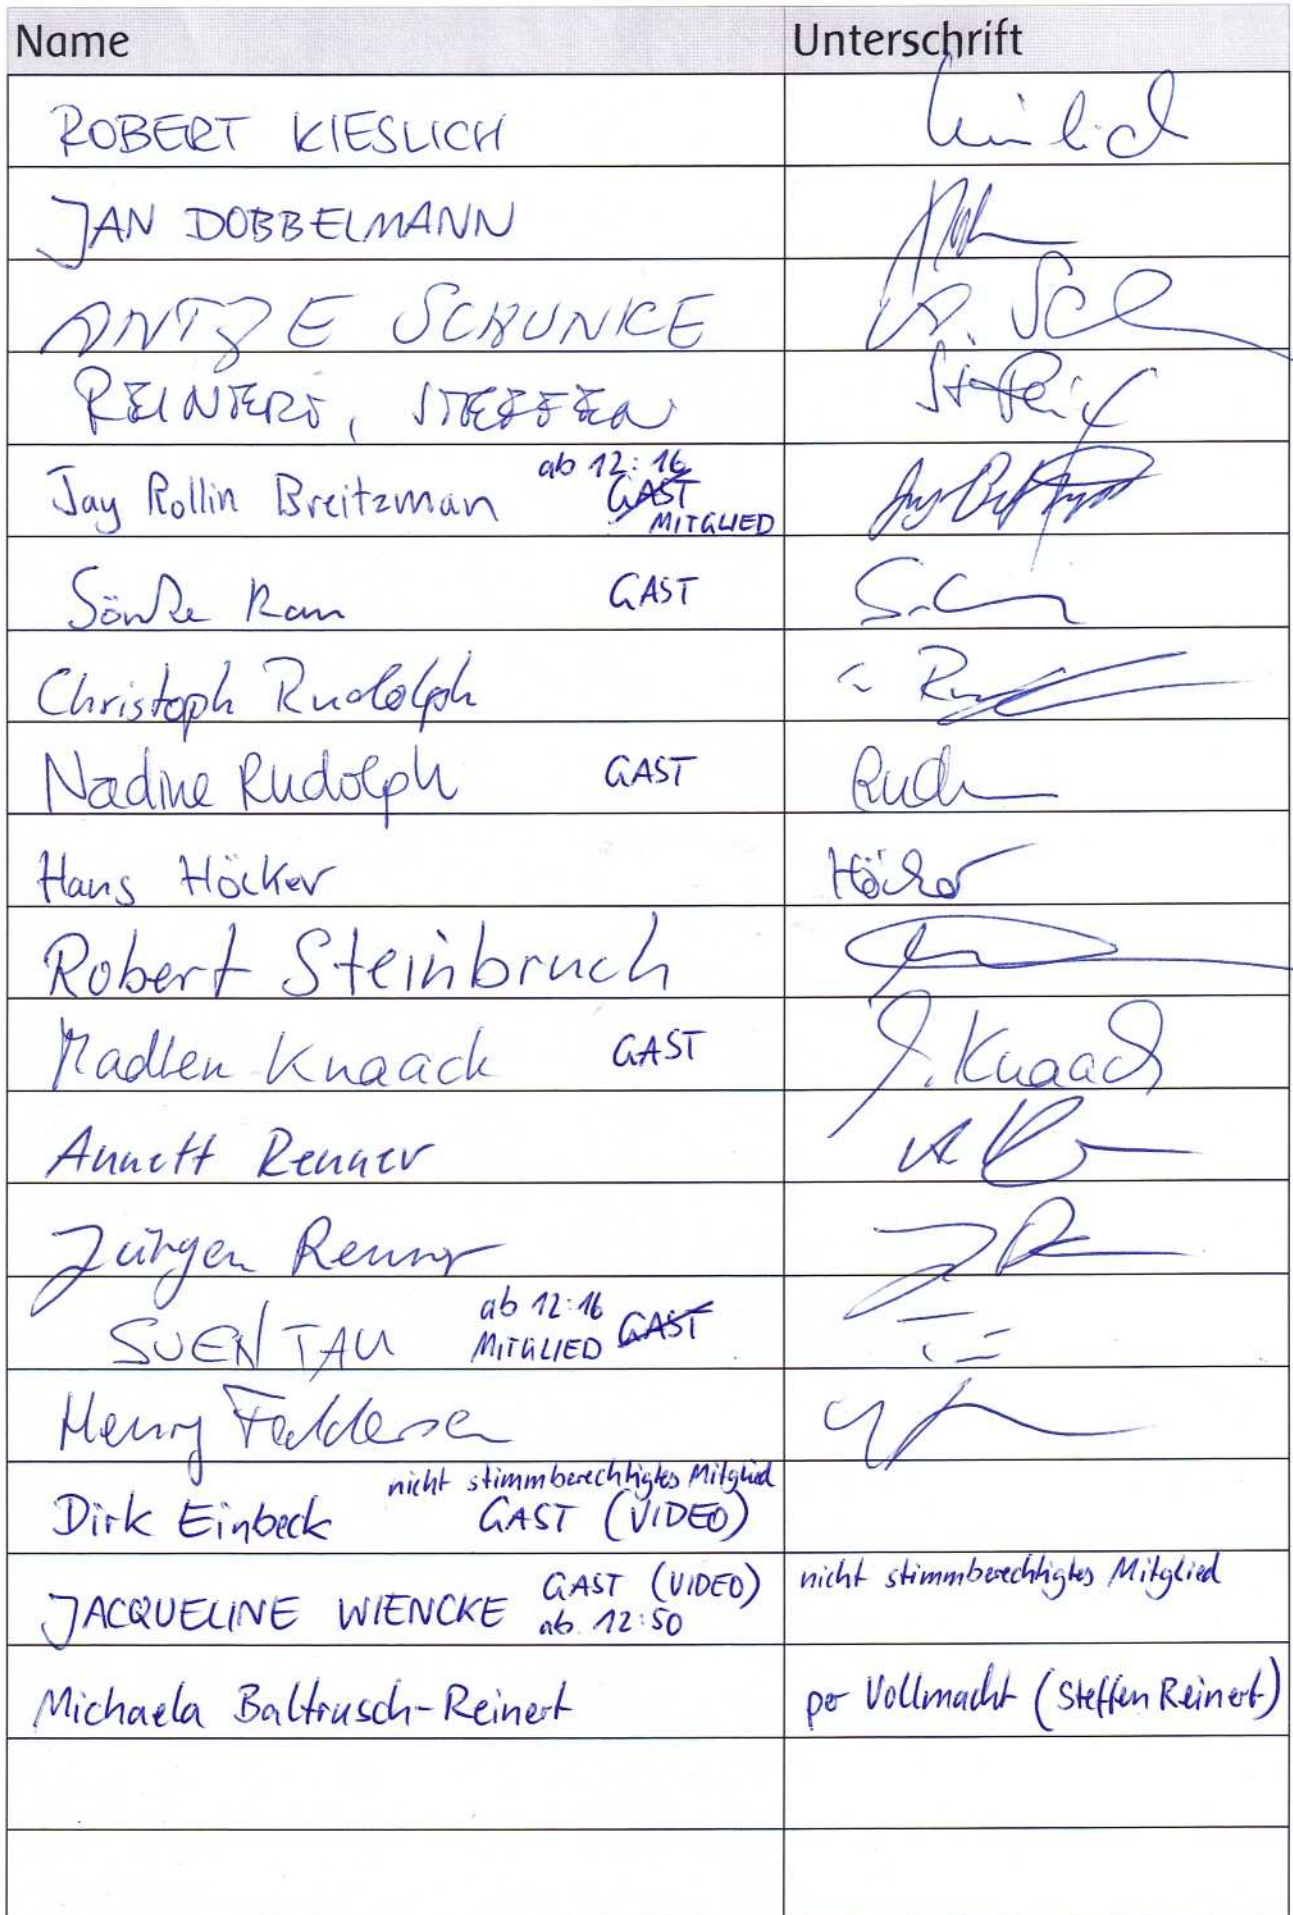 Name Unterschrift
ROBERT KIESLICH
JAN DOBBELMANN
ANTJE SCHUNKE A. Sch
REINERT, STEFFEN
Jay Rollin Breitzman ab 12:16
GAST
MITGLIED
Sönke GAST
Christoph Rudolph
Nadine Rudolph GAST
Hans Höcker Höcker
Robert Steinbruch
Madlen Knaack GAST Knaack
Annett Renner
Jürgen Renner
SVEN TAU ab 12:16
MITGLIED GAST
Henry
nicht stimmberechtigtes Mitglied
Dirk Einbeck GAST (VIDEO)
JACQUELINE WIENCKE GAST (VIDEO) nicht stimmberechtigtes Mitglied
ab 12:50
Michaela Baltrusch-Reinert per Vollmacht (Steffen Reinert)